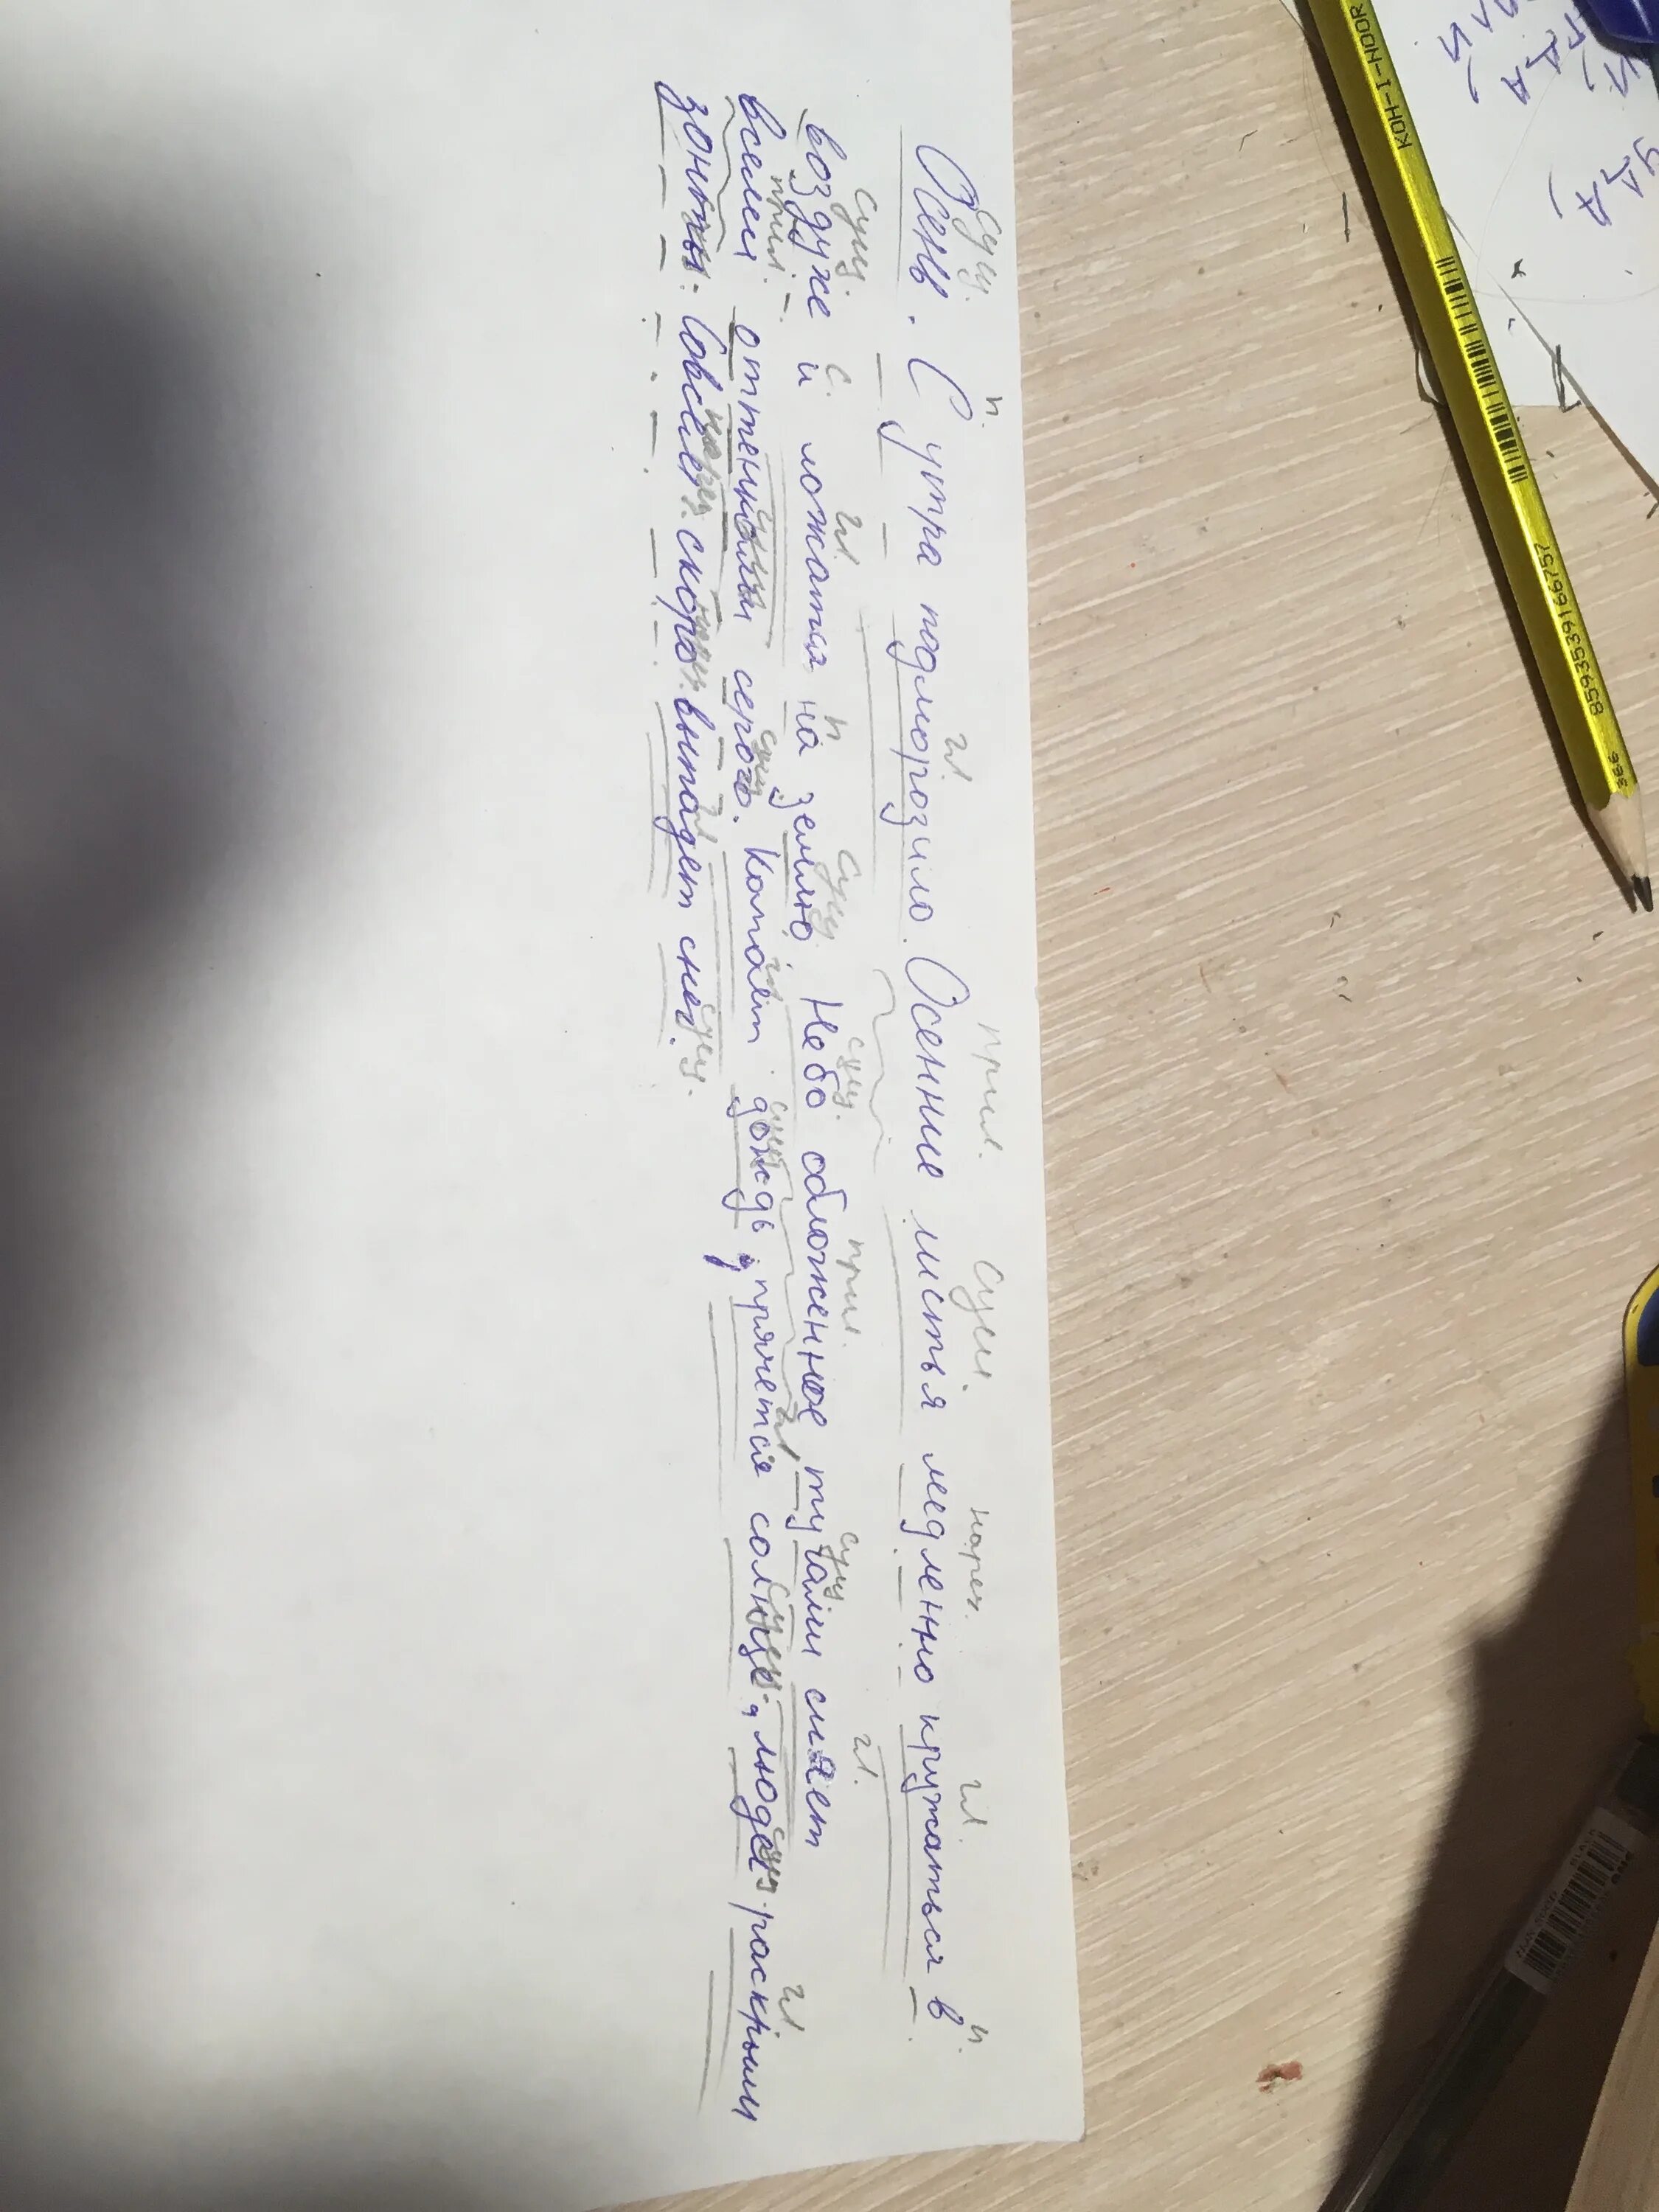 сущ. п. гл. прил. сущ. нареч. гл. п.
Осень. С утра подморозило. Осенние листья медленно кружаться в
сущ. с. гл. п сущ. сущ. прил. сущ гл.
воздухе и ложатся на землю. Небо обложенное тучами сияет
прил. сущ. гл сущ гл сущ. сущ. гл
всеми оттенками серого. Капает дождь, прячется солнце, люди раскрыли
зонты. Совсем скоро выпадет снег.
нареч. нареч. гл сущ.
KOH-I-NOOR
8593539166757